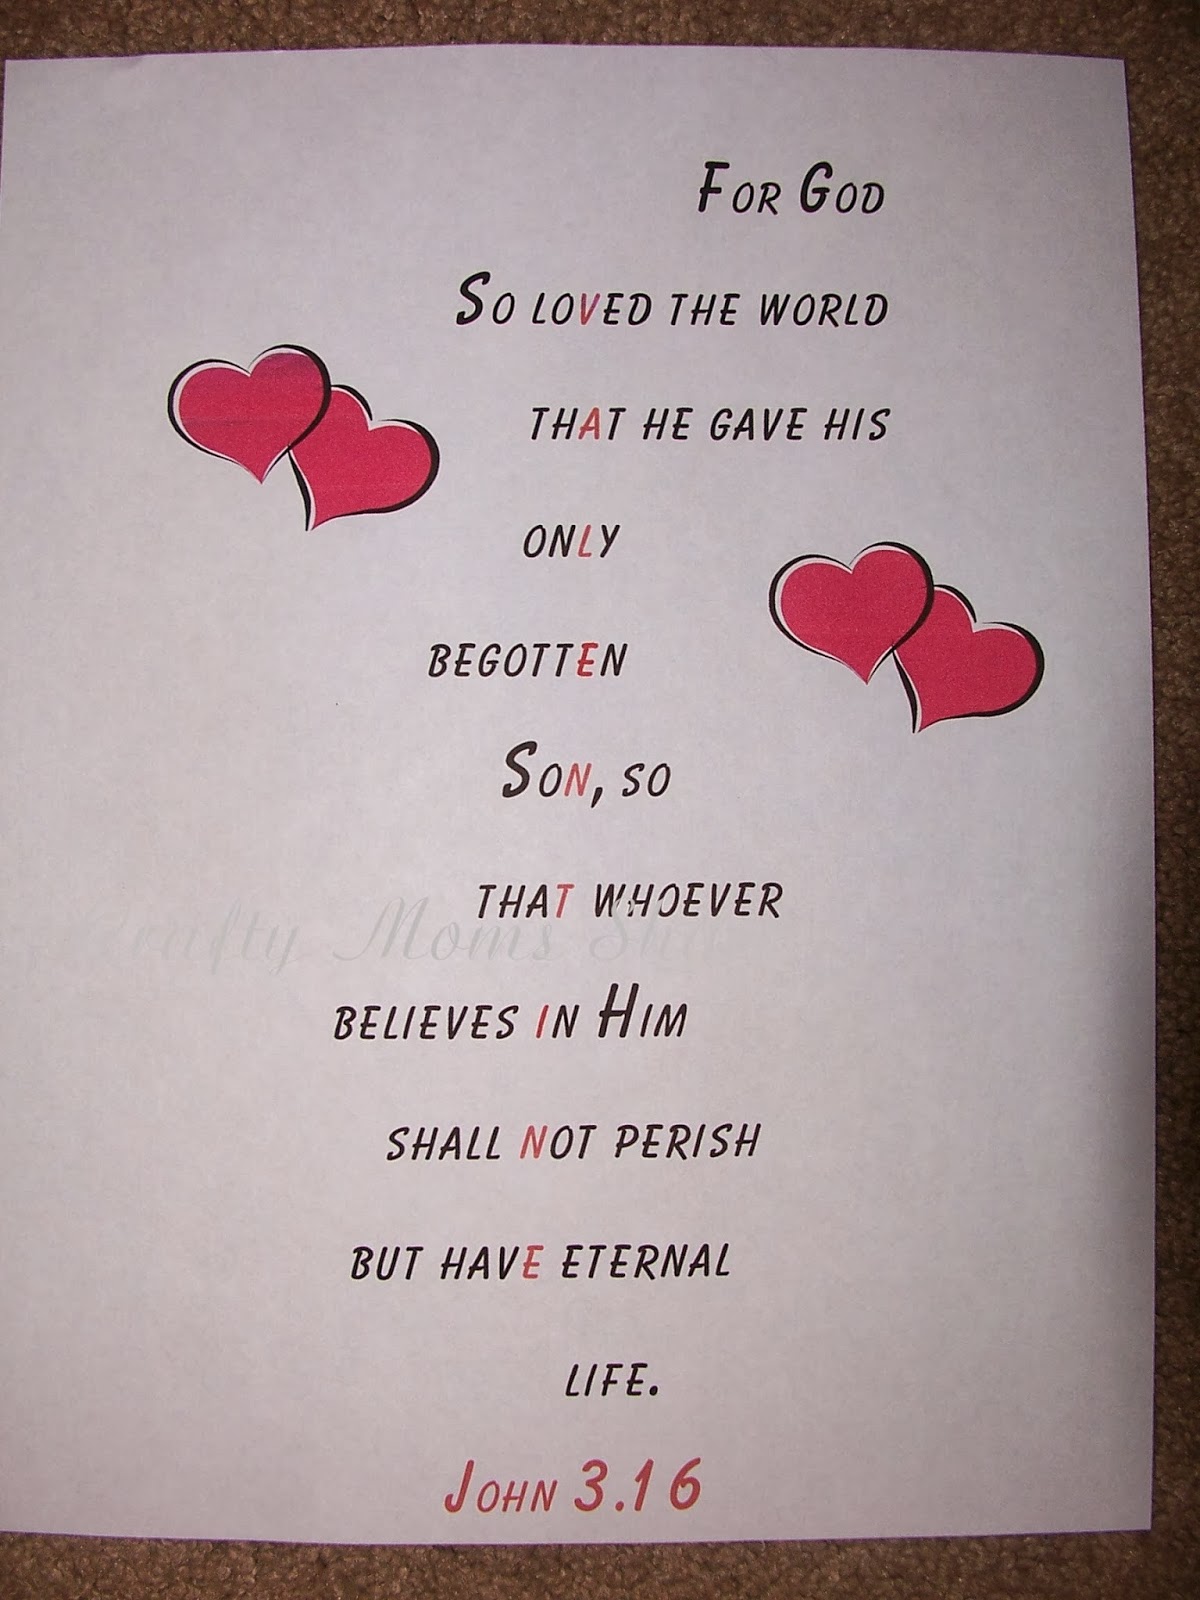 For God
So loved the world
that he gave his
only
begotten
Son, so
that whoever
Crafty Moms
believes in Him
shall not perish
but have eternal
life.
John 3.16